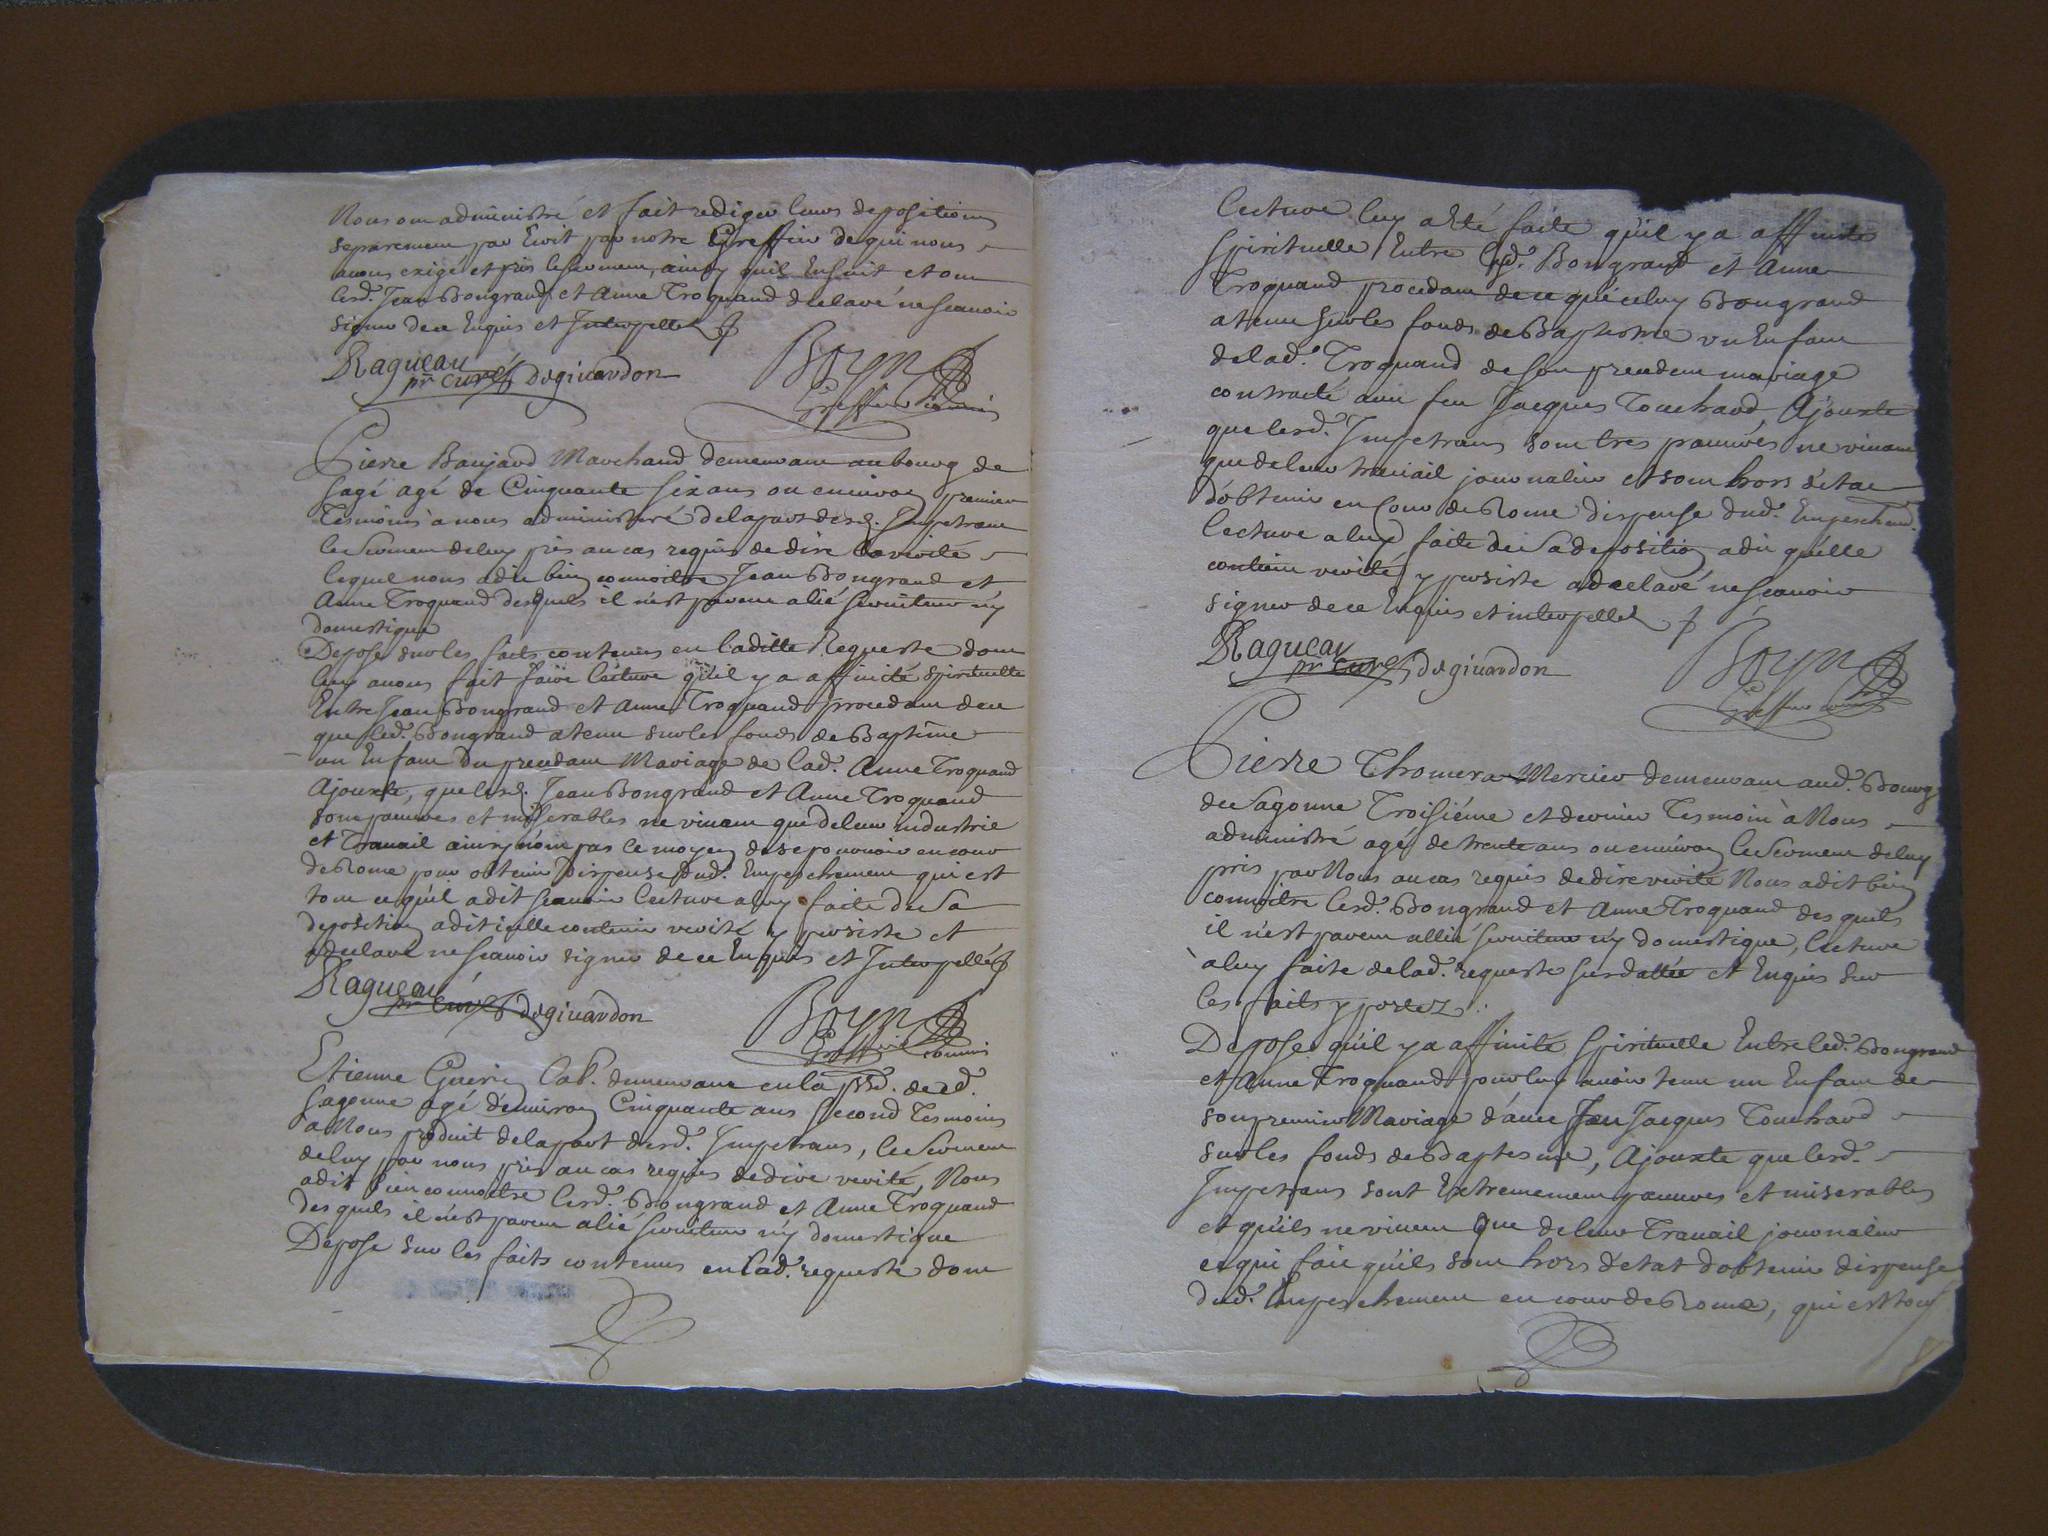 Nous ont administré et fait rediger leurs depositions
separement par Ecrit par notre Greffier de qui nous
avons exigé et pris le serment, ainsy quil Ensuit et ont
lesd. Jean Bongrand et Anne Troquand declaré ne scauoir
signer de ce Enquis et Interpellés
Ragueau
pr curé degirardon Boyn
Greffier commis
Pierre Baujard Marchand demeurant au bourg de
Sagö agé de Cinquante six ans ou enuiron premier
Tesmoins a nous administré de la part desd. Impetrans
le serment de luy pris au cas requis de dire la verité
lequel nous a dit bien connoitre Jean Bongrand et
Anne Troquand desquels il n'est parent alié seruiteur ny
domestique
Depose sur les faits contenus en laditte Requeste dont
luy auons fait faire lecture qu'il y a affinité spirituelle
Entre Jean Bongrand et Anne Troquand procedant de ce
que led. Bongrand a tenu sur les fonds de Baptême
un Enfant du precedant Mariage de lad. Anne Troquand
Ajouste, que lesd. Jean Bongrand et Anne Troquand
sont pauures et miserables ne viuant que de leur industrie
et Trauail ainsy n'ont pas le moyen de se pouruoir en cour
de Rome pour obtenir Dispense dud. Empeschement qui est
tout ce qu'il a dit scauoir lecture a luy faite de sa
deposition a dit icelle contenir verité y persiste et
a declaré ne scauoir signer de ce Enquis et Interpellé
Ragueau
pr curé degirardon Boyn
Greffier commis
Etienne Guerin Lab. demeurant en la psse. de ced.
Sagonne agé d'enuiron Cinquante ans second Tesmoins
a Nous produit de la part desd. Impetrans, le serment
de luy par nous pris au cas requis de dire verité, Nous
a dit bien connoitre lesd. Bongrand et Anne Troquand
des quels il n'est parent alié seruiteur ny domestique
Depose sur les faits contenus en lad. requeste dont
lecture luy a Eté faite qu'il y a affinité
spirituelle Entre lesd. Bongrand et Anne
Troquand procedant de ce que celuy Bongrand
a tenu sur les fonds de Baptesme un Enfant
de lad. Troquand de son precedent mariage
contracté auec feu Jacques Touchard, Ajouste
que lesd. Impetrans sont tres pauures ne viuant
que de leur trauail journalier et sont hors d'etat
d'obtenir en Cour de Rome dispense dud. Empeschemt.
lecture a luy faite de sa deposition a dit qu'elle
contient verité, y persiste a declaré ne scauoir
signer de ce Enquis et interpellé
Ragueau
pr curé degirardon Boyn
Greffier commis
Pierre Thomera Mercier demeurant aud. Bourg
de Sagonne Troisiéme et dernier Tesmoin à Nous
administré agé de trente ans ou enuiron le serment de luy
pris par Nous au cas requis de dire verité Nous a dit bien
connoitre lesd. Bongrand et Anne Troquand des quels
il n'est parent allié seruiteur ny domestique, lecture
a luy faite de lad. requeste susdattée et Enquis sur
les faits y portez
Depose qu'il y a affinité spirituelle Entre led. Bongrand
et Anne Troquand pour luy auoir tenu un Enfant de
son premier Mariage d'auec feu Jacques Touchard
sur les fonds de Baptesme, Ajouste que lesd.
Impetrans sont Extremement pauures et miserables
et qu'ils ne viuent que de leur Trauail journalier
ce qui fait qu'ils sont hors d'etat d'obtenir dispense
dud. Empeschement en cour de Rome, qui est tout